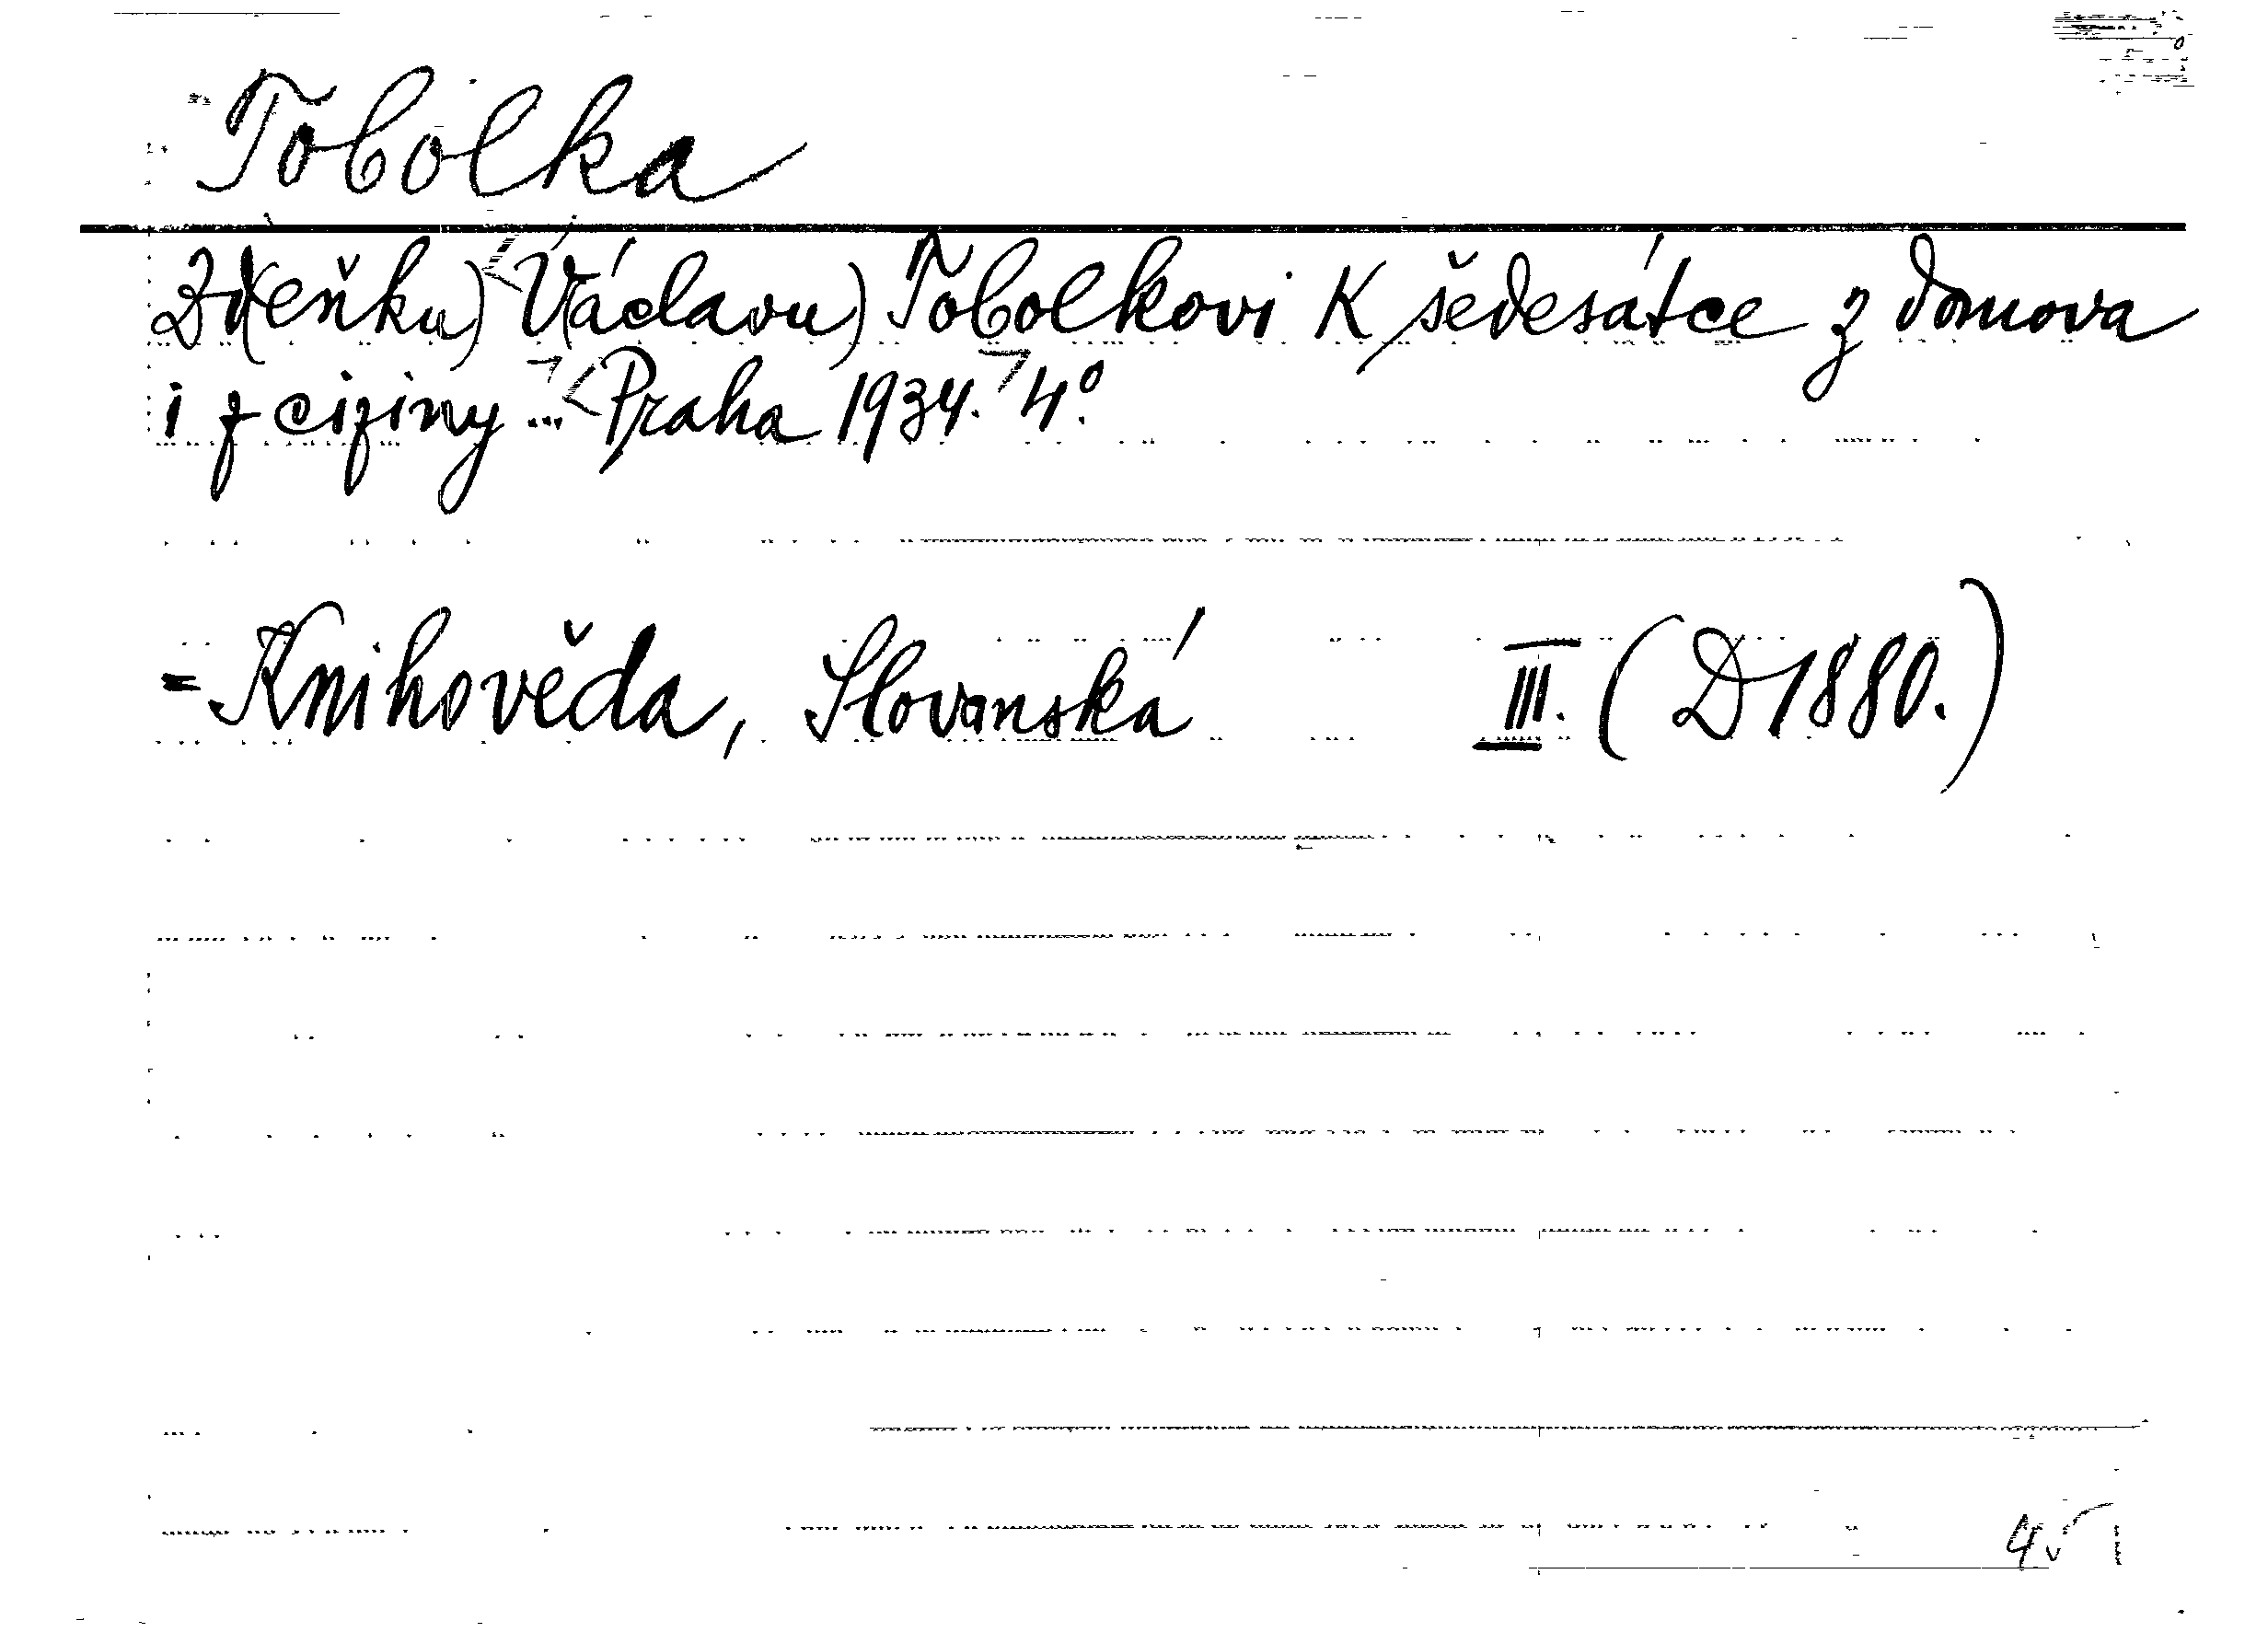 Tobolka
Zd(eňku) V(áclavu) Tobolkovi K šedesátce z domova
i z ciziny ... Praha 1934. 4°.
= Knihověda, Slovanská III. (D 1880.)